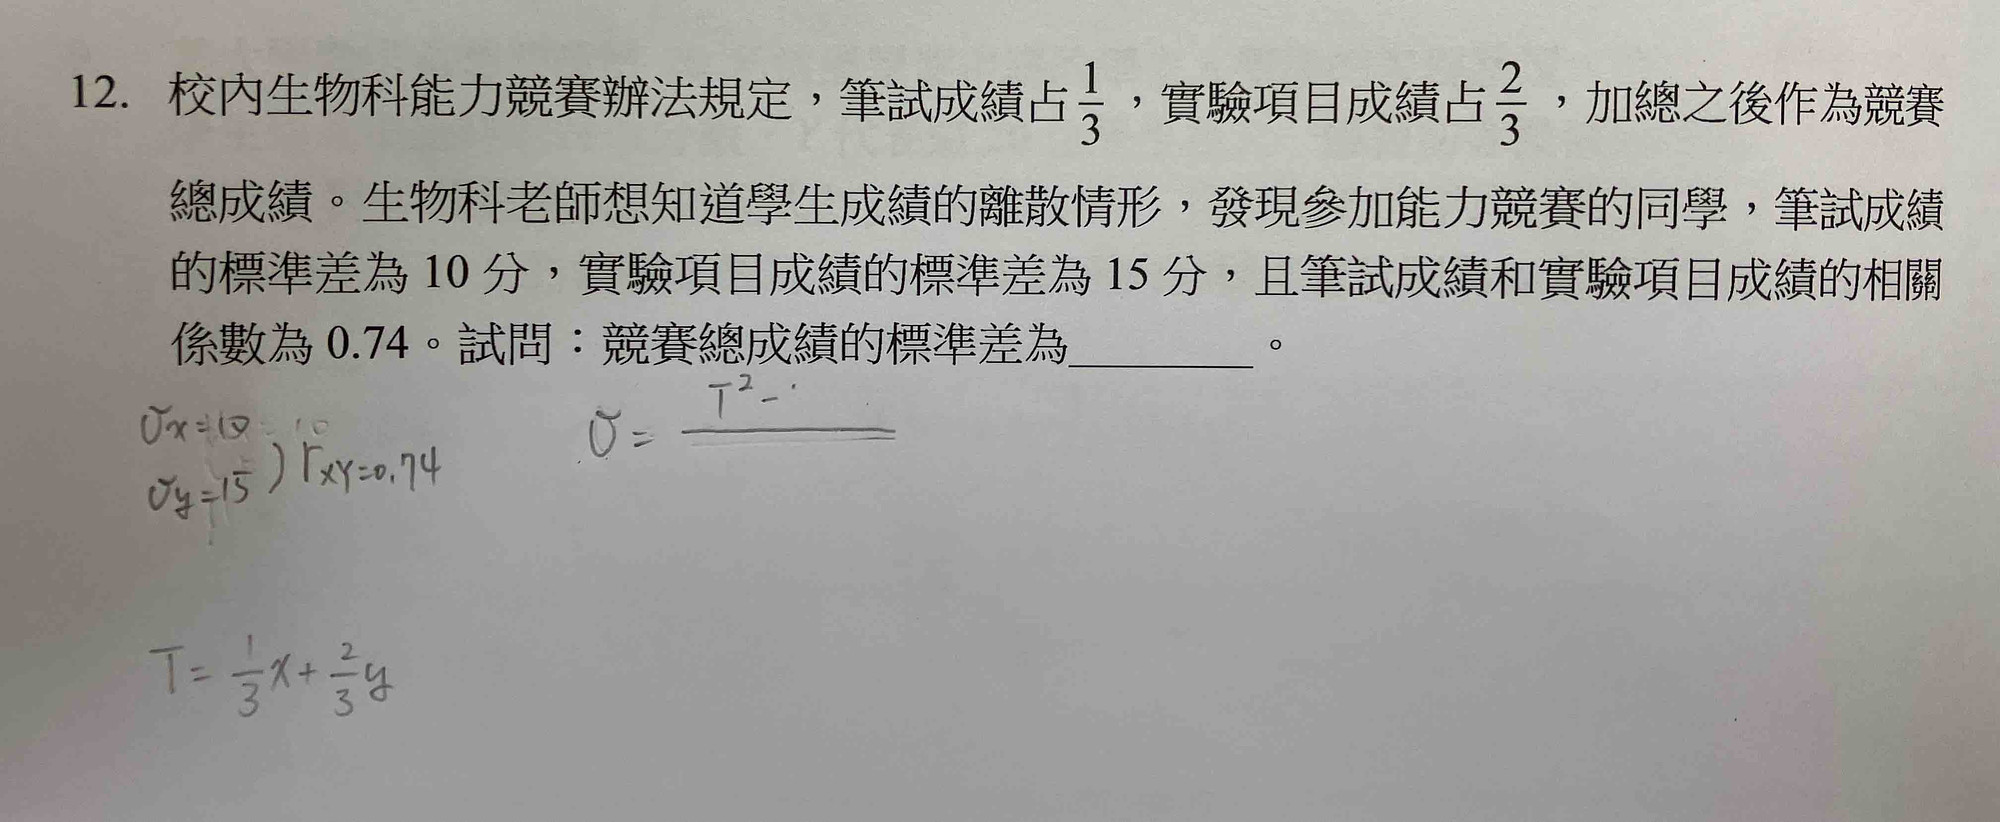 12. 校內生物科能力競賽辦法規定，筆試成績占1/3，實驗項目成績占2/3，加總之後作為競賽
總成績。生物科老師想知道學生成績的離散情形，發現參加能力競賽的同學，筆試成績
的標準差為 10 分，實驗項目成績的標準差為 15 分，且筆試成績和實驗項目成績的相關
係數為 0.74。試問：競賽總成績的標準差為________。
σx=10
σy=15 ) rxy=0.74
σ= T²-
T= 1/3 x+ 2/3 y